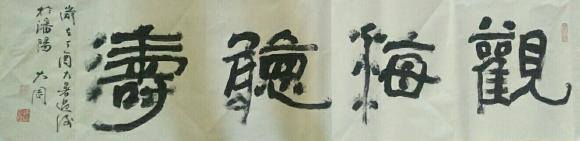 觀海聽濤
歲在丁酉大暑過後
於瀋陽
大同